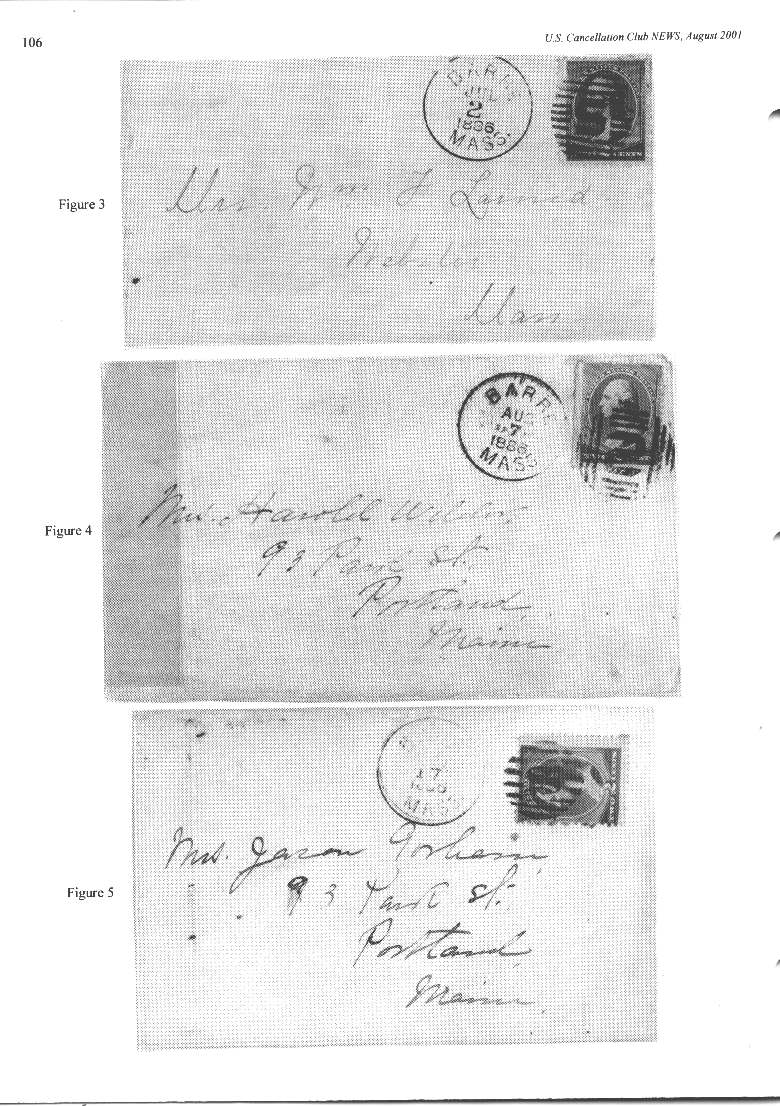 106
U.S. Cancellation Club NEWS, August 2001
BARRE
JUL
2
1886
MASS.
Figure 3
Mrs. Wm. F. Larned
Webster
Mass
BARRE
AUG
17
1886
MASS.
Figure 4
Mrs. Harold
93 Park St.
Portland
Maine
17
1886
MASS
Figure 5
Mrs. Jason Gorham
93 Park St.
Portland
Maine